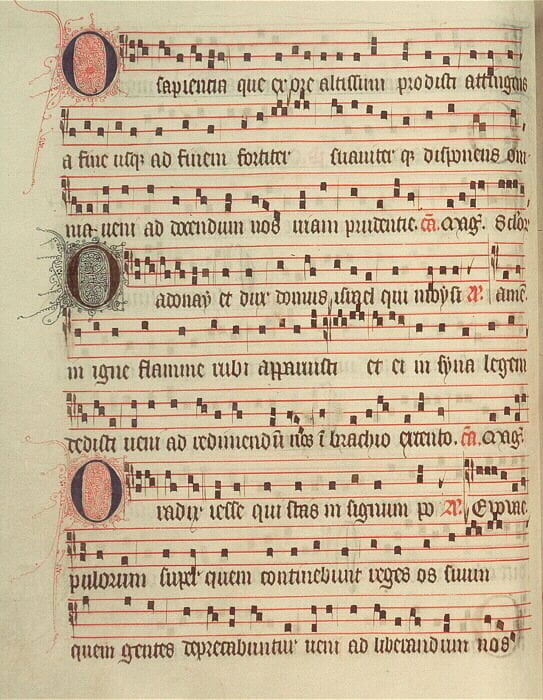 O sapientia que ex ore altissimi prodisti attingens
a fine usq; ad finem fortiter suaviter q; disponens om
nia veni ad docendum nos viam prudentie. cā. Mag̃. Sclōr
O adonay et dux domus israel qui moysi
in igne flamme rubi apparuisti et ei in syna legem
dedisti veni ad redimendū nos ī brachio extento. cā. Mag̃.
O radix iesse qui stas in signum po Evovae
pulorum super quem continebunt reges os suum
quem gentes deprecabuntur veni ad liberandum nos